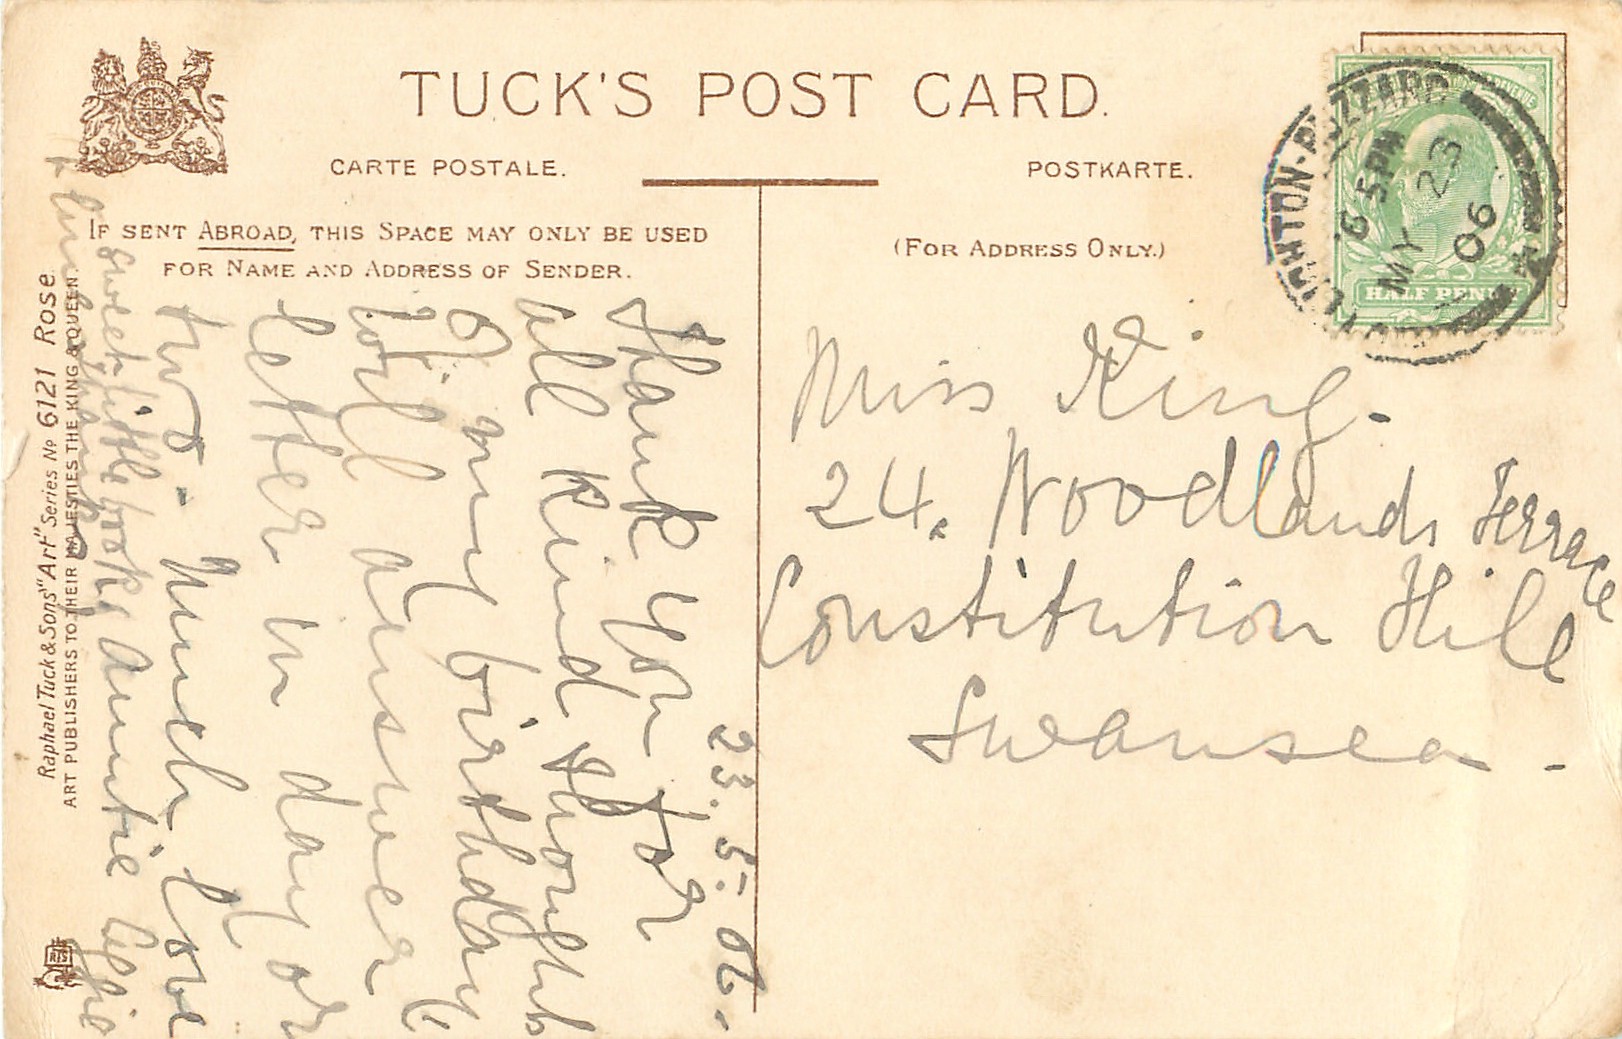 TUCK'S POST CARD.
CARTE POSTALE.
POSTKARTE.
IF SENT ABROAD, THIS SPACE MAY ONLY BE USED
FOR NAME AND ADDRESS OF SENDER.
(FOR ADDRESS ONLY.)
LEIGHTON-BUZZARD
5 PM
MY 23
06
HALF PENNY
23.5.06.
Thank you for
all kind thoughts
of my birthday
will answer
letter in day or
two. Much love
sweet little book, auntie
Miss King.
24. Woodlands Terrace
Constitution Hill
Swansea.
Raphael Tuck & Sons' "Art" Series No 6121 Rose.
ART PUBLISHERS TO THEIR MAJESTIES THE KING & QUEEN.
RTS